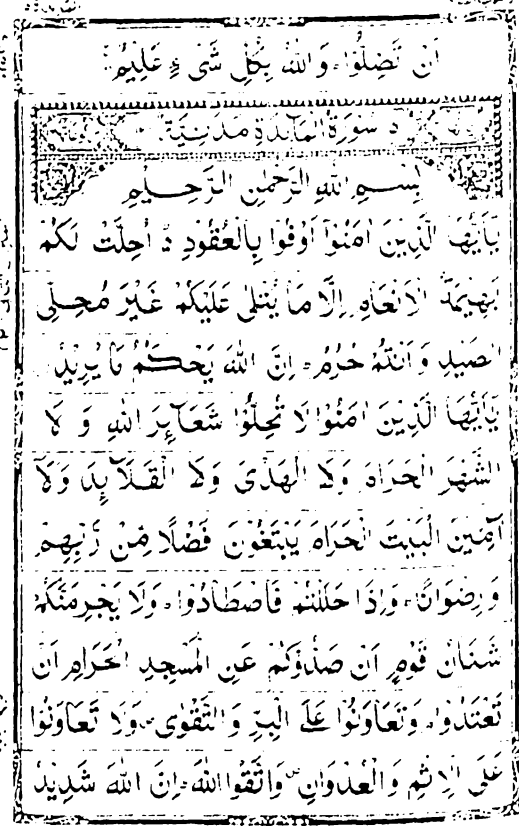 اَنْ تَضِلُّوْا ۗ وَاللّٰهُ بِكُلِّ شَىْءٍ عَلِيْمٌ
سُوْرَةُ الْمَآئِدَةِ مَدَنِيَّةٌ
بِسْمِ اللّٰهِ الرَّحْمٰنِ الرَّحِيْمِ
يٰٓاَيُّهَا الَّذِيْنَ اٰمَنُوْٓا اَوْفُوْا بِالْعُقُوْدِ ۗ اُحِلَّتْ لَكُمْ
بَهِيْمَةُ الْاَنْعَامِ اِلَّا مَا يُتْلٰى عَلَيْكُمْ غَيْرَ مُحِلِّى
الصَّيْدِ وَاَنْتُمْ حُرُمٌ ۗ اِنَّ اللّٰهَ يَحْكُمُ مَا يُرِيْدُ
يٰٓاَيُّهَا الَّذِيْنَ اٰمَنُوْا لَا تُحِلُّوْا شَعَآئِرَ اللّٰهِ وَ لَا
الشَّهْرَ الْحَرَامَ وَلَا الْهَدْىَ وَلَا الْقَلَآئِدَ وَلَآ
آمِّيْنَ الْبَيْتَ الْحَرَامَ يَبْتَغُوْنَ فَضْلًا مِّنْ رَّبِّهِمْ
وَرِضْوَانًا ۗ وَاِذَا حَلَلْتُمْ فَاصْطَادُوْا ۗ وَلَا يَجْرِمَنَّكُمْ
شَنَاٰنُ قَوْمٍ اَنْ صَدُّوْكُمْ عَنِ الْمَسْجِدِ الْحَرَامِ اَنْ
تَعْتَدُوْا ۘ وَتَعَاوَنُوْا عَلَى الْبِرِّ وَالتَّقْوٰى ۖ وَلَا تَعَاوَنُوْا
عَلَى الْاِثْمِ وَالْعُدْوَانِ ۖ وَاتَّقُوا اللّٰهَ ۗ اِنَّ اللّٰهَ شَدِيْدُ